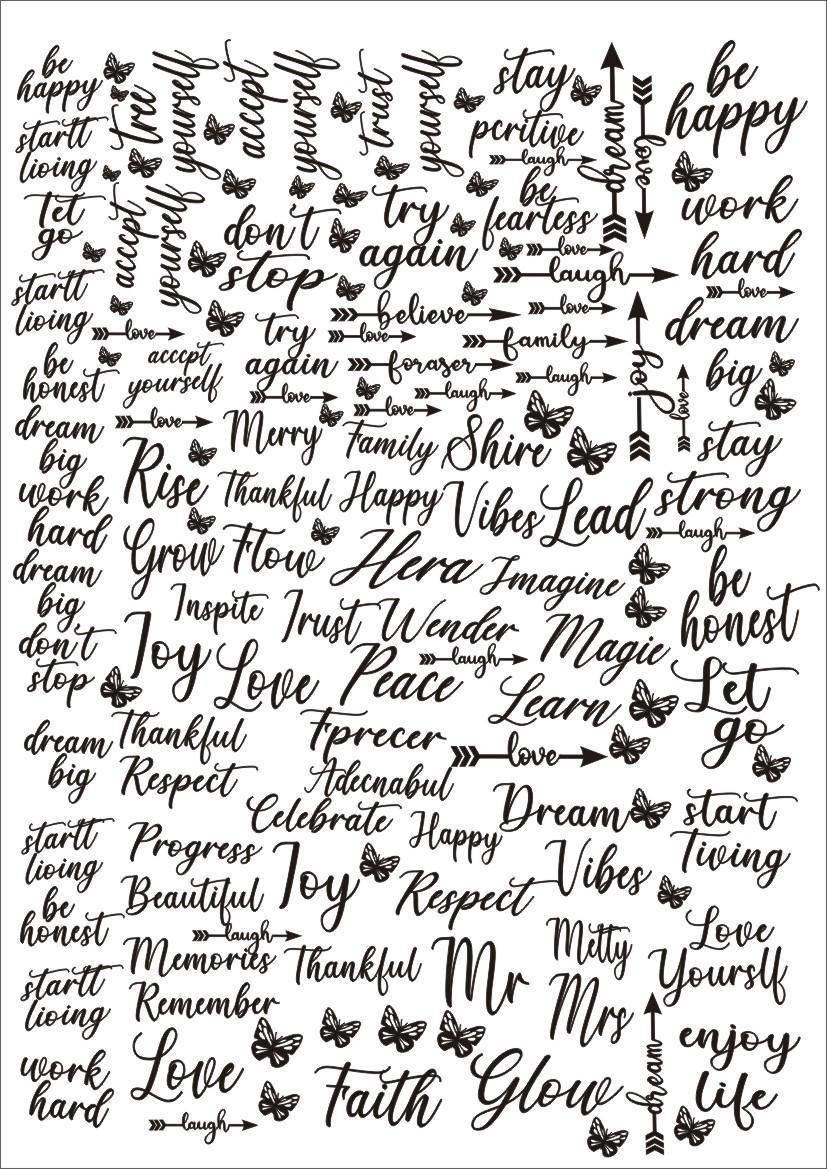 be
happy
startt
lioing
let
go
startt
lioing
be
honest
dream
big
work
hard
dream
big
don't
stop
dream
big
startt
lioing
be
honest
startt
lioing
work
hard
yourself
acccpt
yourself
trust
yourself
acccpt
yourself
don't
stop
try
again
stay
pcritive
laugh
be
fearless
love
laugh
dream
love
be
happy
work
hard
love
dream
big
stay
strong
laugh
be
honest
Let
go
start
Tiving
Love
Yourslf
enjoy
life
love
acccpt
yourself
love
try
again
love
believe
love
love
family
foraser
laugh
laugh
love
joy
love
Merry
Family
Shire
Rise
Thankful
Happy
Vibes
Lead
Grow
Flow
Hera
Imagine
Inspite
Trust
Wender
Magie
Joy
Love
Peace
laugh
Learn
Thankful
Fprecer
love
Respect
Adecnabul
Celebrate
Happy
Dream
Progress
Joy
Vibes
Beautiful
Respect
laugh
Memories
Thankful
Mr
Metty
Remember
Mrs
Love
Faith
Glow
dream
laugh